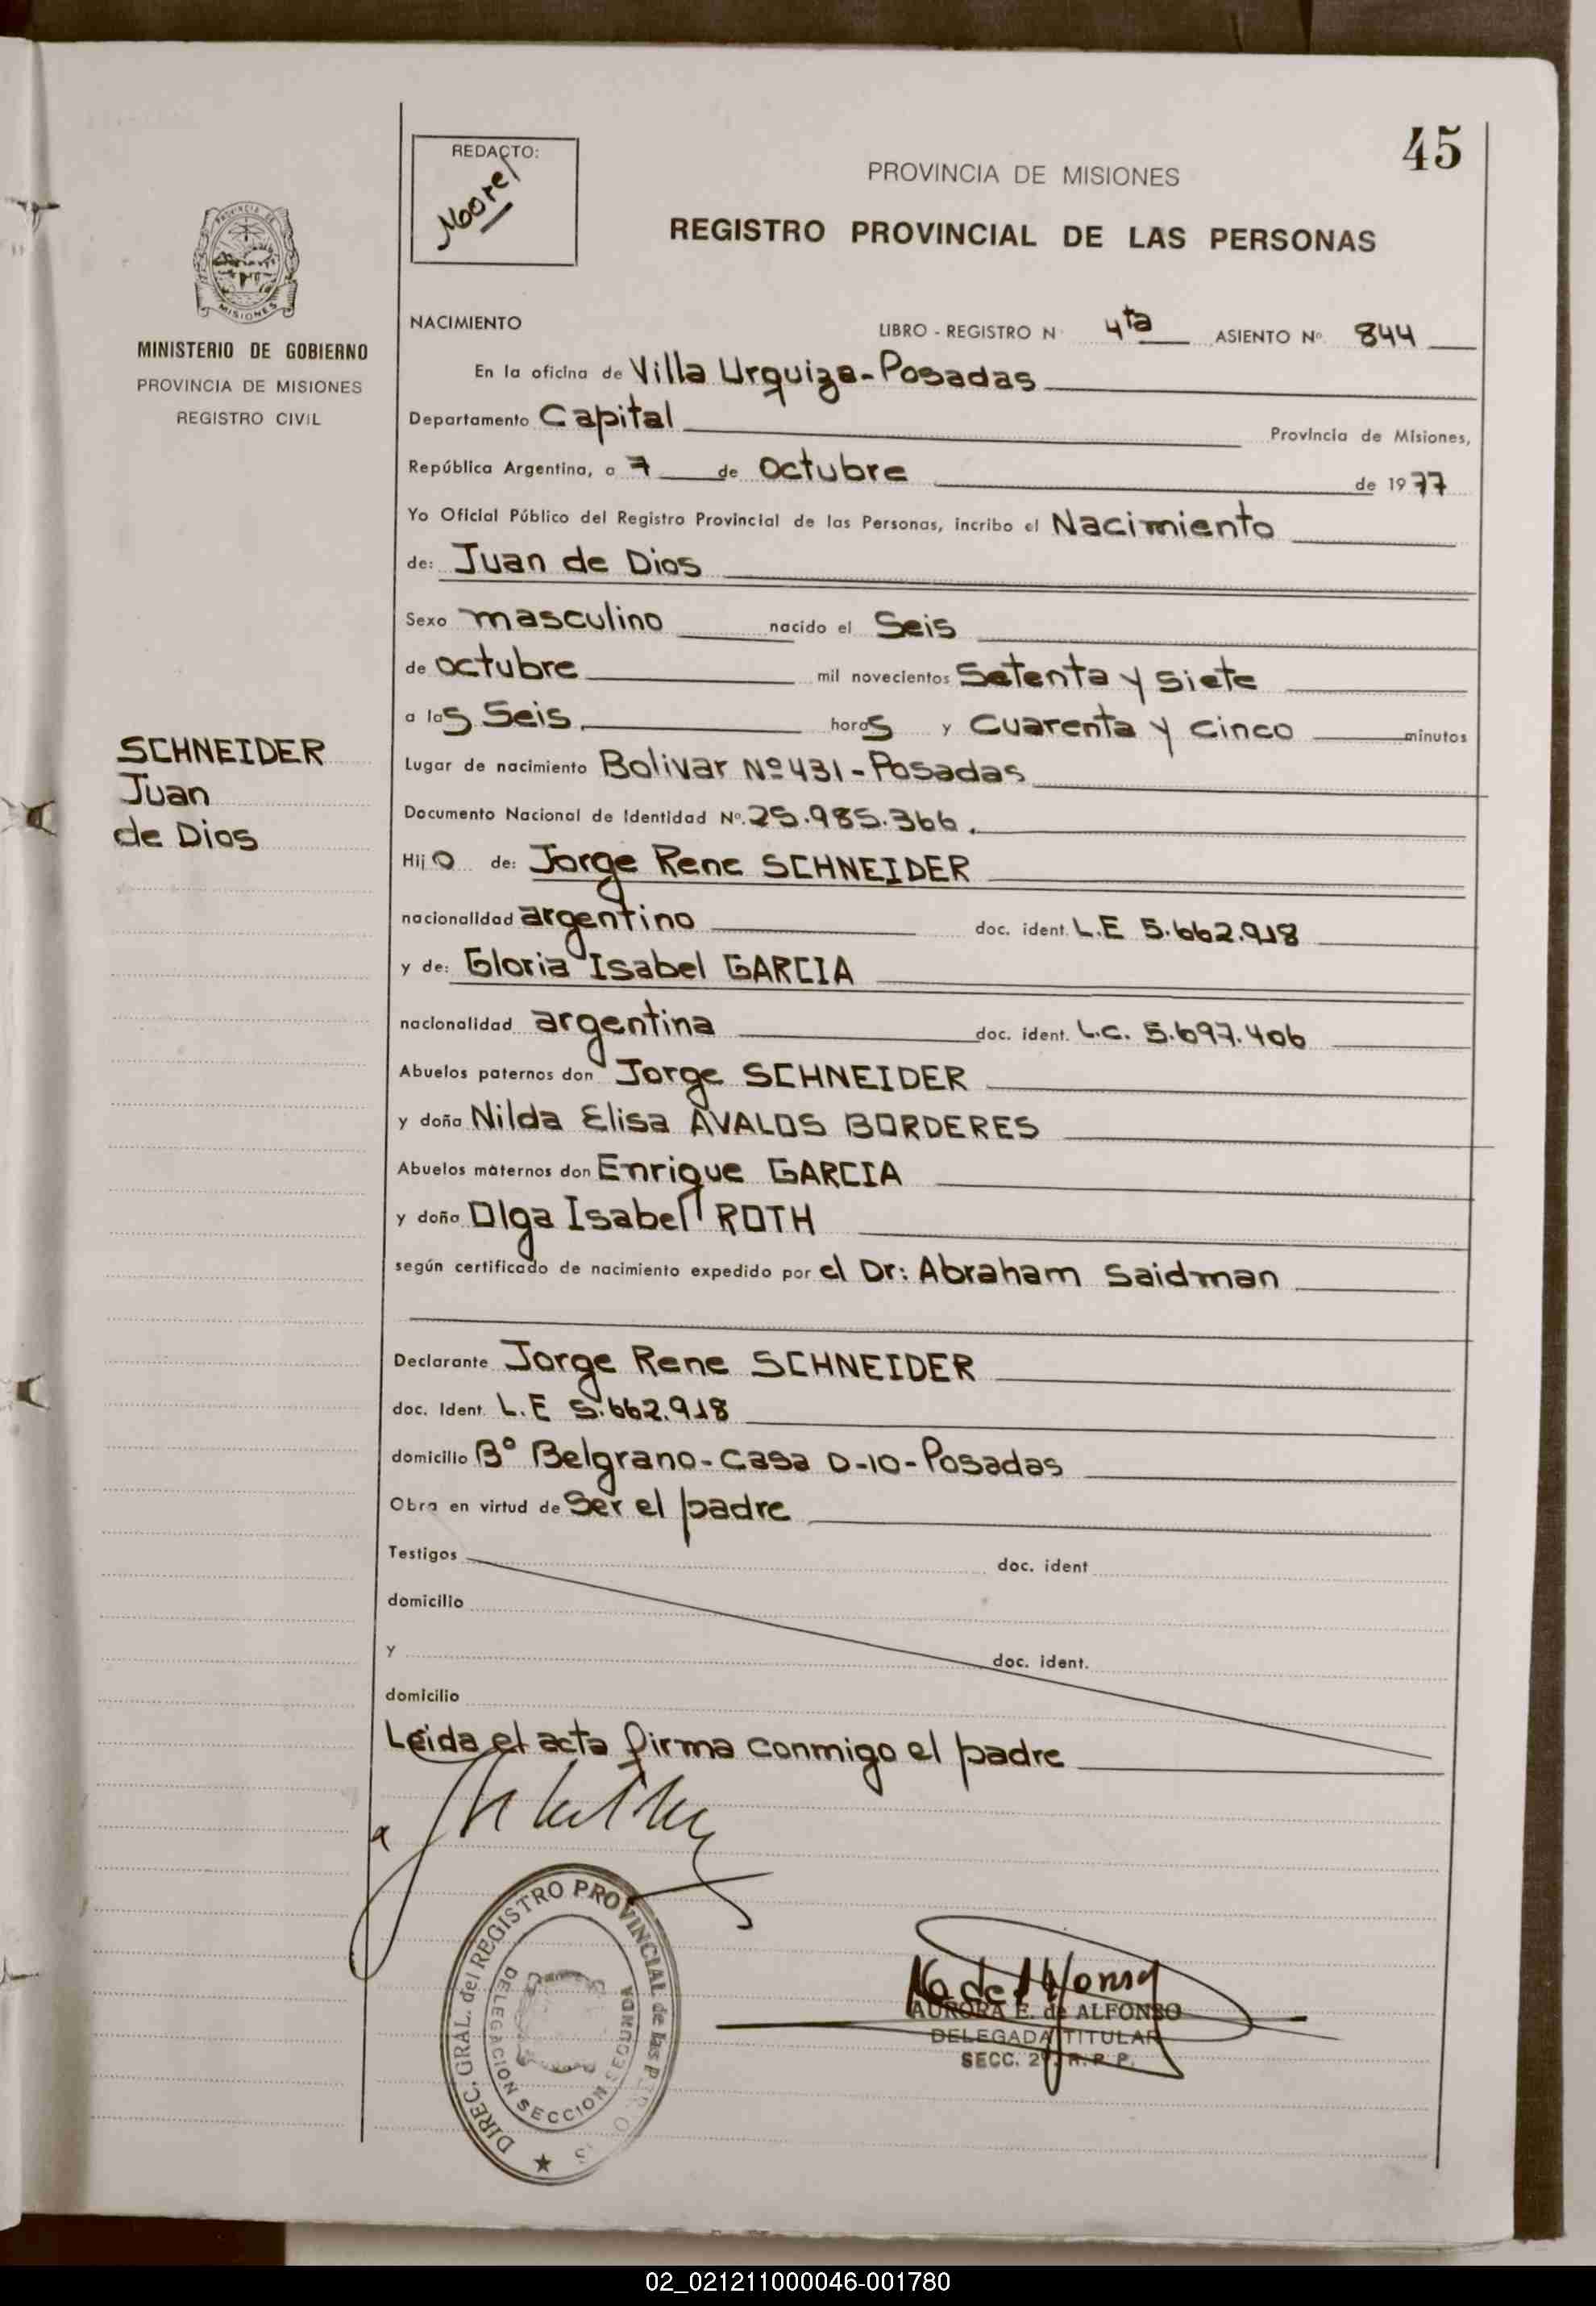 45
REDACTO:
Moore
PROVINCIA DE MISIONES
REGISTRO PROVINCIAL DE LAS PERSONAS
MISIONES
MINISTERIO DE GOBIERNO
PROVINCIA DE MISIONES
REGISTRO CIVIL
SCHNEIDER
Juan
de Dios
NACIMIENTO LIBRO - REGISTRO N 4ta ASIENTO Nº 844
En la oficina de Villa Urquiza-Posadas
Departamento Capital Provincia de Misiones,
República Argentina, a 7 de Octubre de 1977
Yo Oficial Público del Registro Provincial de las Personas, incribo el Nacimiento
de: Juan de Dios
Sexo masculino nacido el Seis
de octubre mil novecientos Setenta y siete
a las Seis horas y Cuarenta y cinco minutos
Lugar de nacimiento Bolivar Nº 431-Posadas
Documento Nacional de Identidad Nº. 25.985.366.
Hijo de: Jorge Rene SCHNEIDER
nacionalidad argentino doc. ident. L.E 5.662.918
y de: Gloria Isabel GARCIA
nacionalidad argentina doc. ident. L.C. 5.697.406
Abuelos paternos don Jorge SCHNEIDER
y doña Nilda Elisa AVALOS BORDERES
Abuelos maternos don Enrique GARCIA
y doña Olga Isabel ROTH
según certificado de nacimiento expedido por el Dr: Abraham Saidman
Declarante Jorge Rene SCHNEIDER
doc. Ident. L.E 5.662.918
domicilio Bº Belgrano-Casa D-10-Posadas
Obra en virtud de Ser el padre
Testigos doc. ident
domicilio
y doc. ident.
domicilio
Leida el acta firma conmigo el padre
DIREC. GRAL. del REGISTRO PROVINCIAL de las
DELEGACION SECCION SEGUNDA
AURORA E. de ALFONSO
DELEGADA TITULAR
SECC. 2ª. R. P. P.
02_021211000046-001780